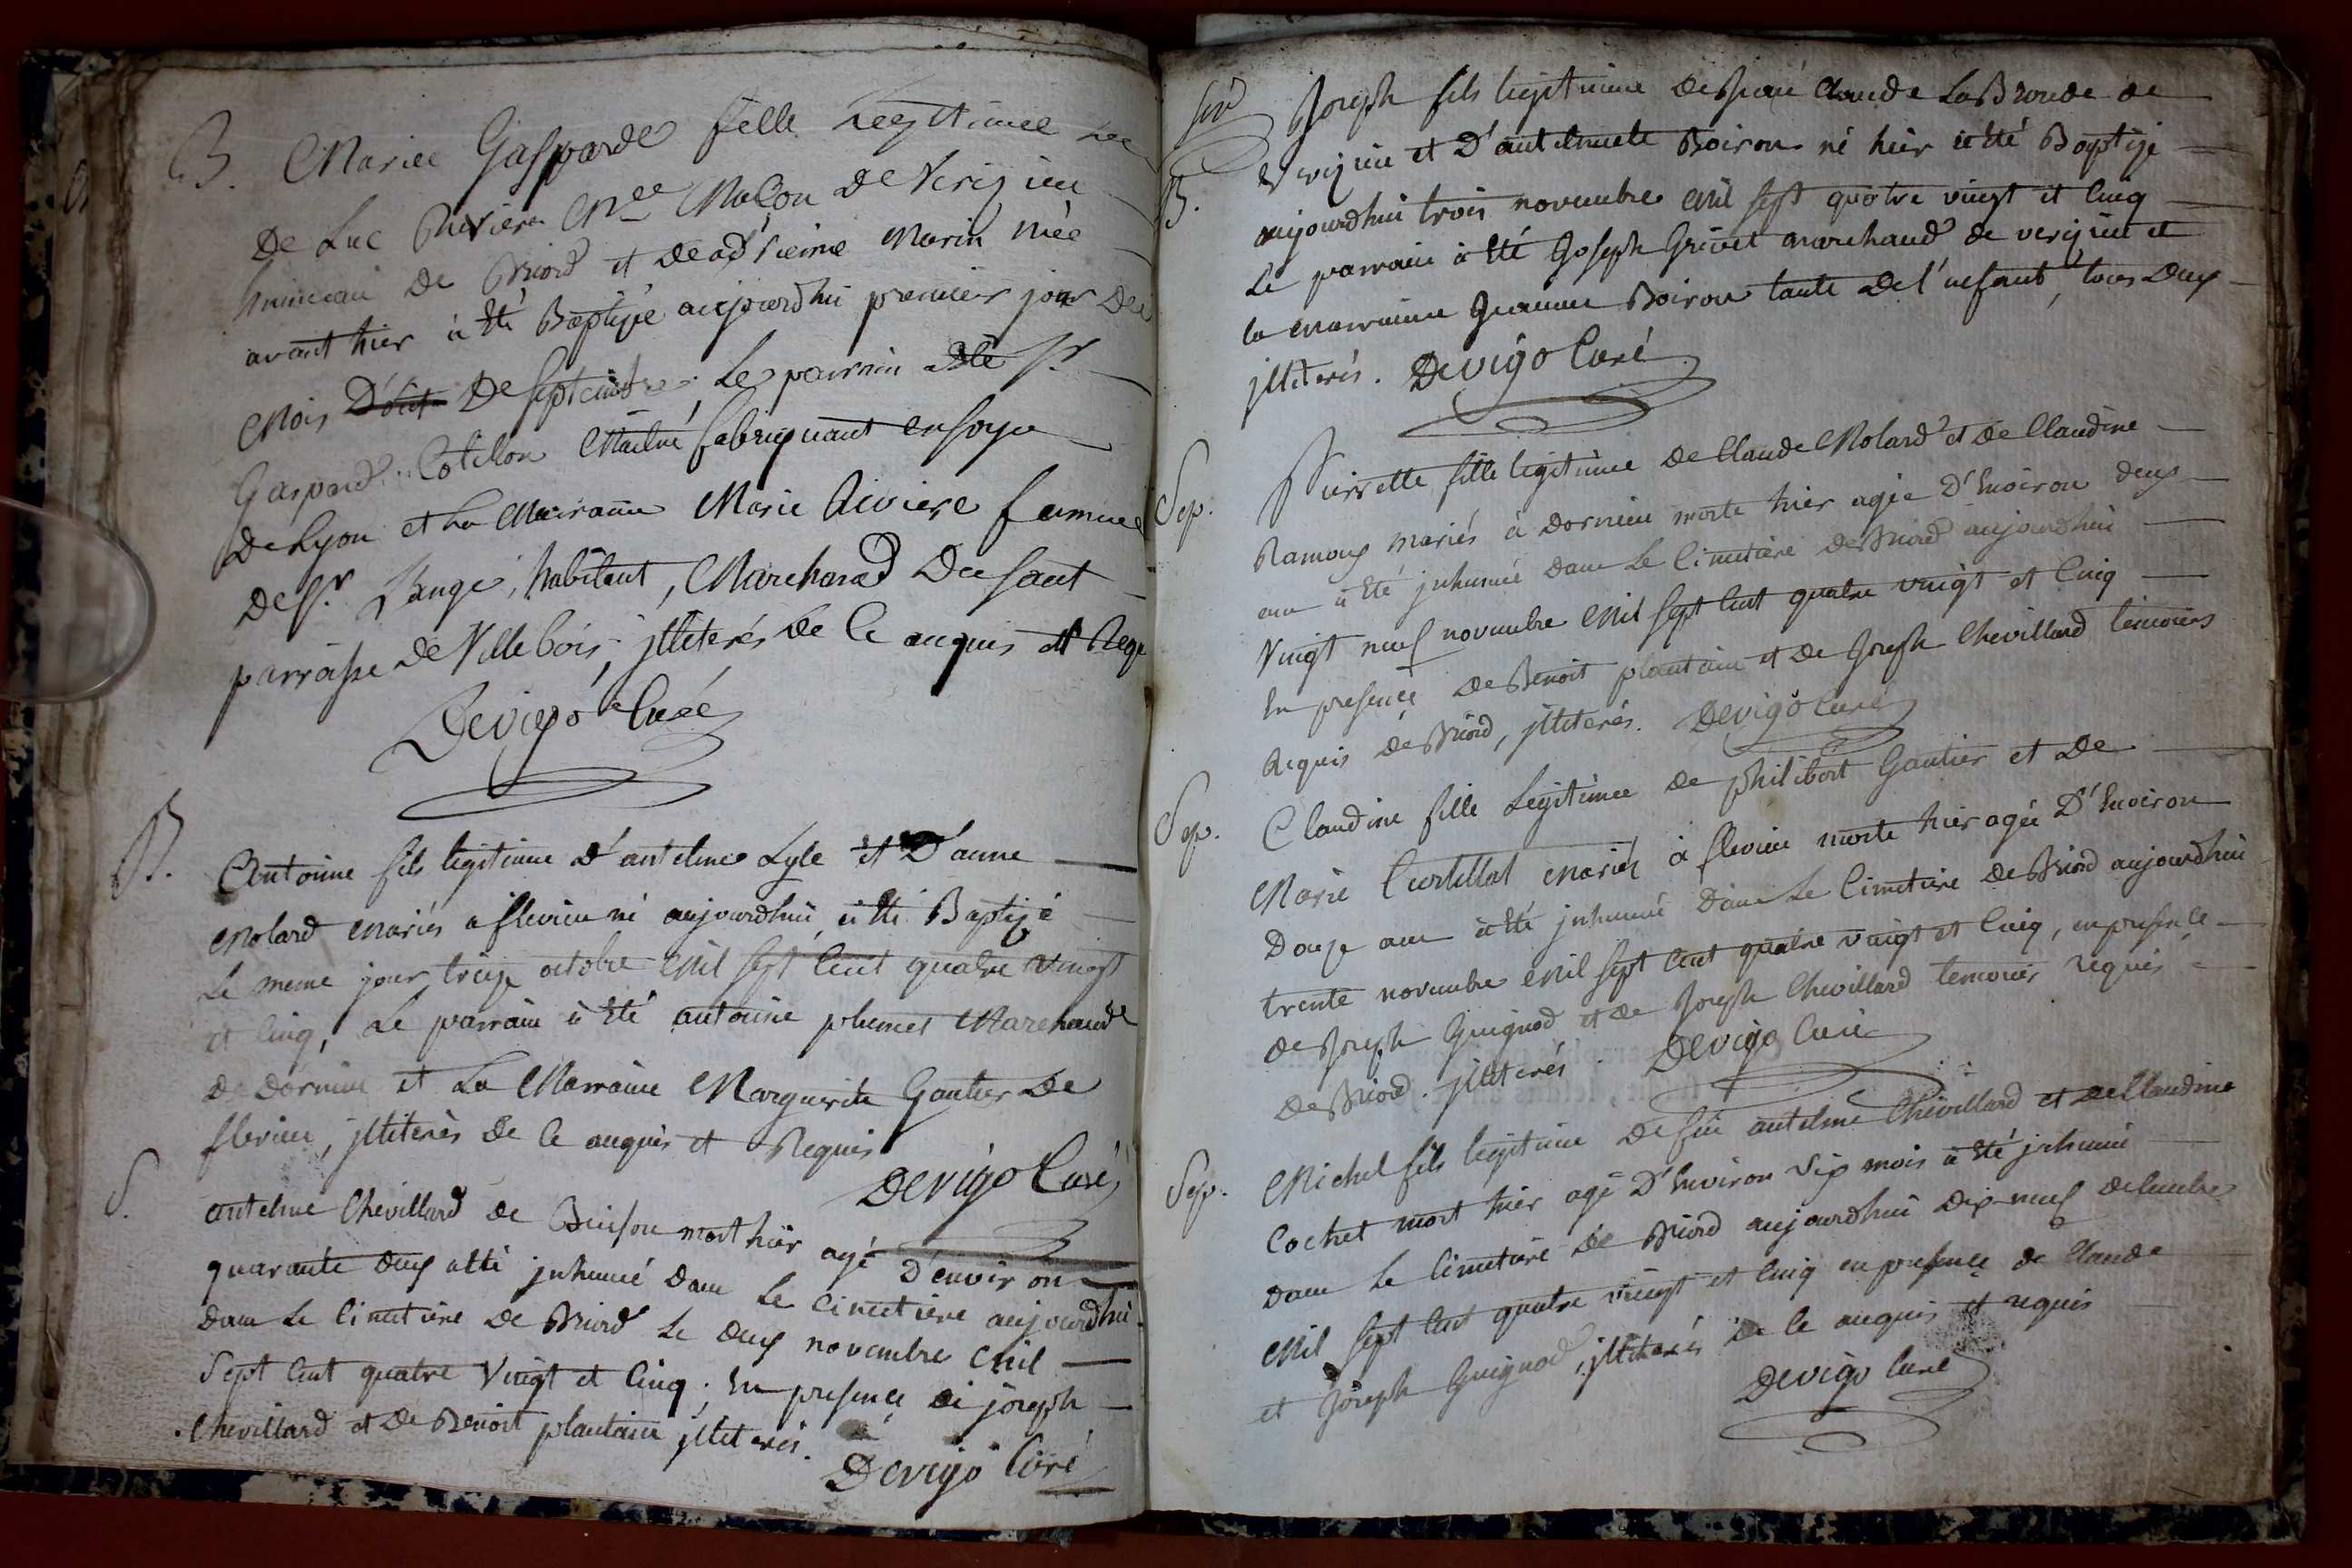 B. Mariee Gasparde fille Legitimee
De Luc Riviere Me Maçon De Verizieu
hameau de Briord et de adrienne Marin née
avant hier à Eté Baptizée aujourdhui premier jour Du
Mois D'out De Septembre. Le parrain a Eté Sr
Gaspard Cotillon Maitre fabriquant en soye
De Lyon et La Marainne Marie Riviere femme
De Sr Lange, habitant, Marchand Du Saut
parroisse De Ville bois, jlliterés De Ce anquis et Requ
Devigo Curé
B. Antoine fils legitime D'antelme Lyle et D'anne
Molard Mariés a flevieu né aujourdhui, à Eté Baptizé
Le meme jour treize octobre Mil sept Cent quatre vingt
et Cinq, Le parrain à Eté antoine plumet Marchand
De Dornieu et La Marraine Marguerite Gautier De
flevieu, jlliterés De Ce anquis et Requis
Devigo Curé
S. antelme Chevillard de Buisson mort hier agé D'environ
quarante Deux a Eté jnhumé Dans Le Cimetiere aujourdhui
Dans Le Cimetiere De Briord Le Deux novembre Mil
Sept Cent quatre Vingt et Cinq; En presence de joseph
Chevillard et De Benoit plantain jlliterés.
Devigo Curé
Joseph fils legitimme De Claude LaBronde de
B. verizieu et D'antelmete Boiron né hier à Eté Baptizé
aujourdhui trois novembre Mil sept quatre vingt et Cinq
Le parrain à Eté Joseph Grivet marchand de verizieu et
la Marrainne Jeanne Boiron tante De l'enfant, tous Deux
jlliterés. Devigo Curé
Sep. Pierrette fille legitimee De Claude Molard et De Claudine
Ramoux mariés à Dornieu morte hier agée D'Environ deux
ans à Eté jnhumée Dans Le Cimetiere De Briord aujourdhui
Vingt neuf novembre Mil Sept Cent quatre vingt et Cinq
En presence De Benoit plantain et De Joseph Chevillard temoiens
Requis De Briord, jlliterés. Devigo Curé
Sep. Claudine fille Legitimee De philibert Gautier et De
Marie Curtillat Mariés à flevieu morte hier agée D'Environ
Douze ans à Eté jnhumé Dans Le Cimetiere De Briord aujourdhui
trente novembre Mil Sept Cent quatre vingt et Cinq, en presence
de Joseph Guignod et De Joseph Chevillard temoiens requis
De Briord. jlliterés. Devigo Curé
Sep. Michel fils legitime De feu antelme Chevillard et De Claudine
Cochet mort hier agé D'Environ Six mois à Eté jnhumé
Dans Le Cimetiere De Briord aujourdhui Dix neuf Decembre
Mil Sept Cent quatre vingt et Cinq en presence de Claude
et Joseph Guignod, jlliterés De Ce anquis et requis
Devigo Curé